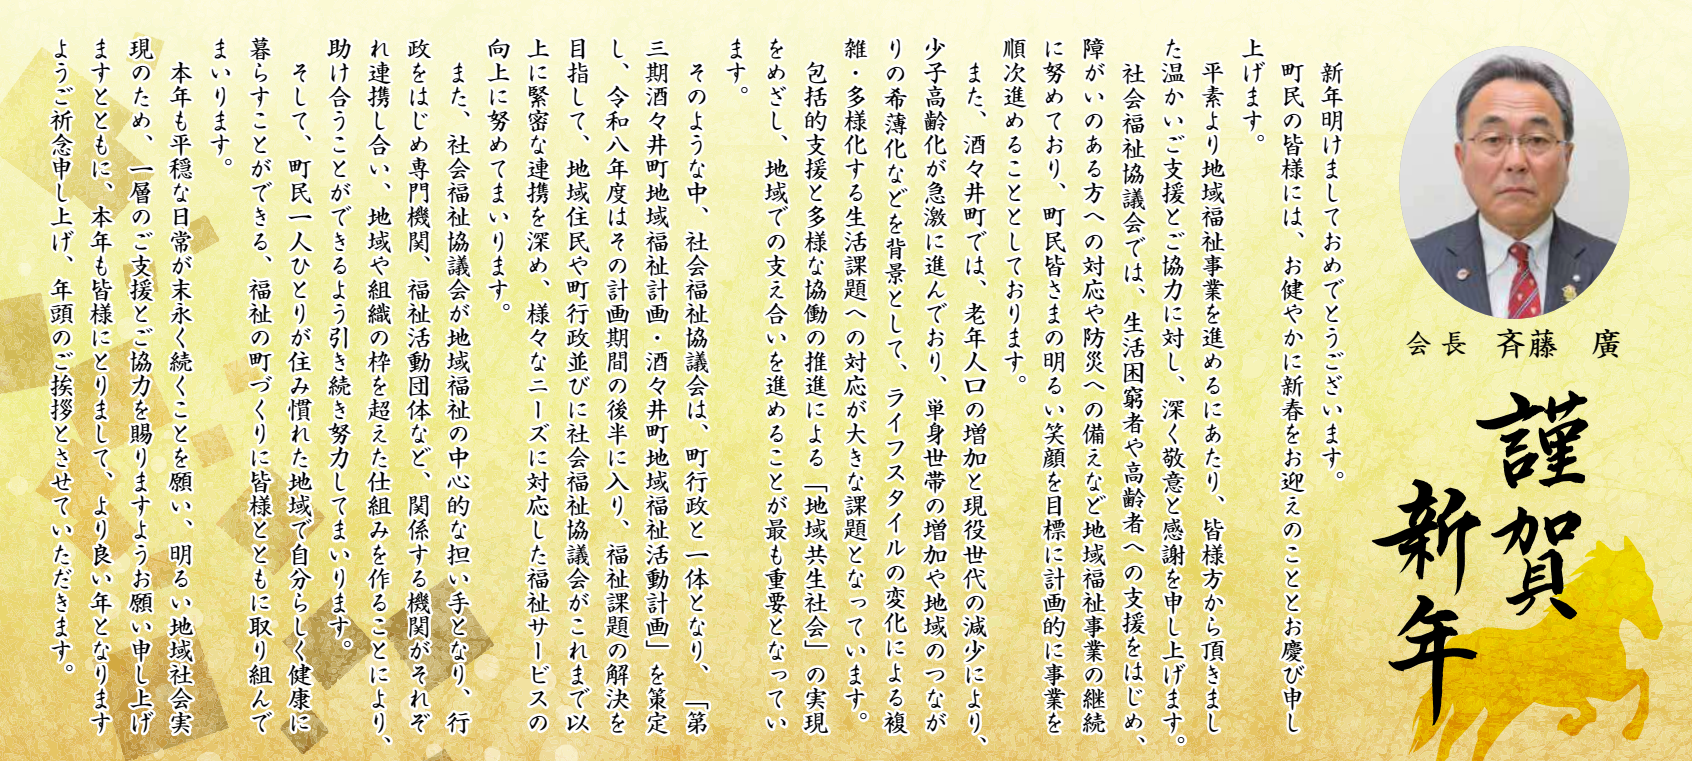 会長 斉藤 廣
謹賀
新年
新年明けましておめでとうございます。
町民の皆様には、お健やかに新春をお迎えのこととお慶び申し
上げます。
平素より地域福祉事業を進めるにあたり、皆様方から頂きまし
た温かいご支援とご協力に対し、深く敬意と感謝を申し上げます。
社会福祉協議会では、生活困窮者や高齢者への支援をはじめ、
障がいのある方への対応や防災への備えなど地域福祉事業の継続
に努めており、町民皆さまの明るい笑顔を目標に計画的に事業を
順次進めることとしております。
また、酒々井町では、老年人口の増加と現役世代の減少により、
少子高齢化が急激に進んでおり、単身世帯の増加や地域のつなが
りの希薄化などを背景として、ライフスタイルの変化による複
雑・多様化する生活課題への対応が大きな課題となっています。
包括的支援と多様な協働の推進による「地域共生社会」の実現
をめざし、地域での支え合いを進めることが最も重要となってい
ます。
そのような中、社会福祉協議会は、町行政と一体となり、「第
三期酒々井町地域福祉計画・酒々井町地域福祉活動計画」を策定
し、令和八年度はその計画期間の後半に入り、福祉課題の解決を
目指して、地域住民や町行政並びに社会福祉協議会がこれまで以
上に緊密な連携を深め、様々なニーズに対応した福祉サービスの
向上に努めてまいります。
また、社会福祉協議会が地域福祉の中心的な担い手となり、行
政をはじめ専門機関、福祉活動団体など、関係する機関がそれぞ
れ連携し合い、地域や組織の枠を超えた仕組みを作ることにより、
助け合うことができるよう引き続き努力してまいります。
そして、町民一人ひとりが住み慣れた地域で自分らしく健康に
暮らすことができる、福祉の町づくりに皆様とともに取り組んで
まいります。
本年も平穏な日常が末永く続くことを願い、明るい地域社会実
現のため、一層のご支援とご協力を賜りますようお願い申し上げ
ますとともに、本年も皆様にとりまして、より良い年となります
ようご祈念申し上げ、年頭のご挨拶とさせていただきます。